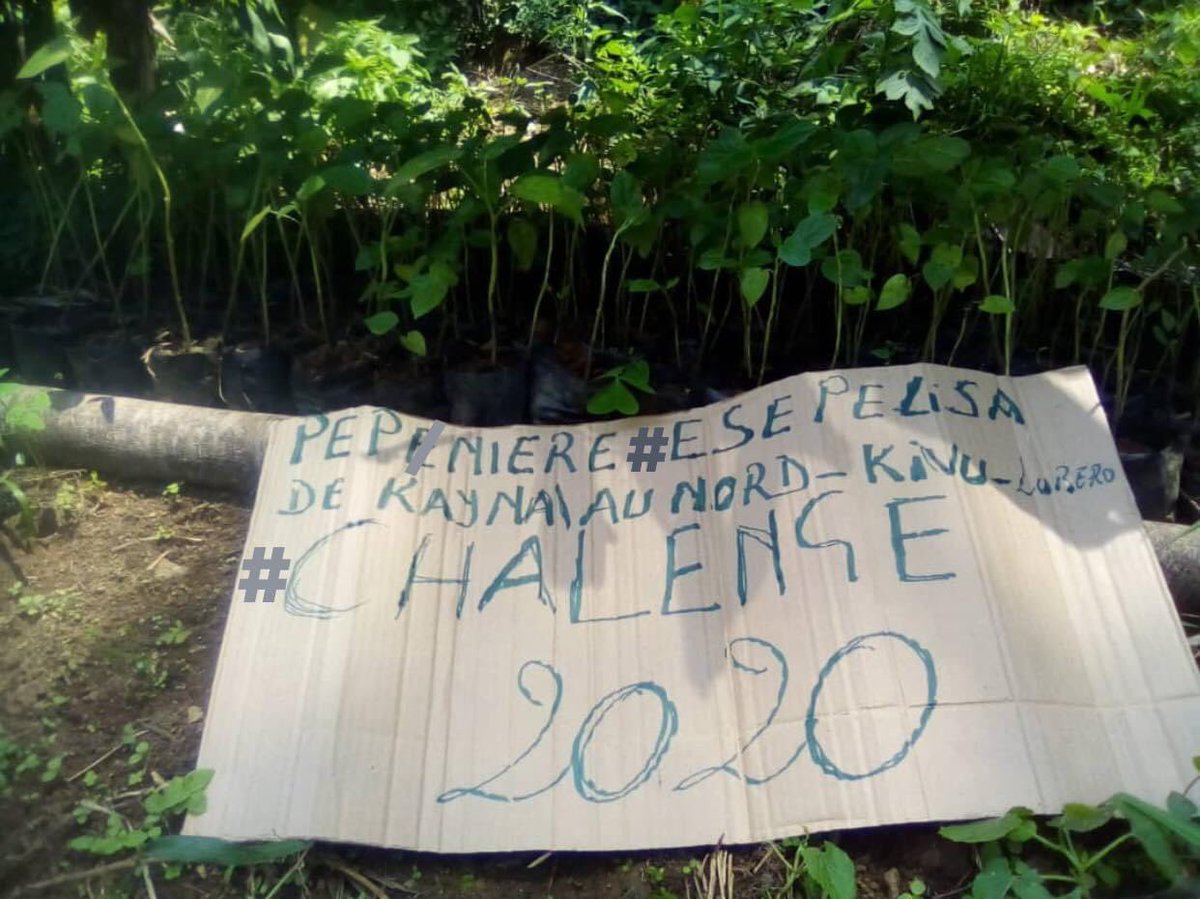 PEPENIERE #ESEPELISA
DE KAYNA\AU NORD-KIVU-LUBERO
#CHALENGE
2020